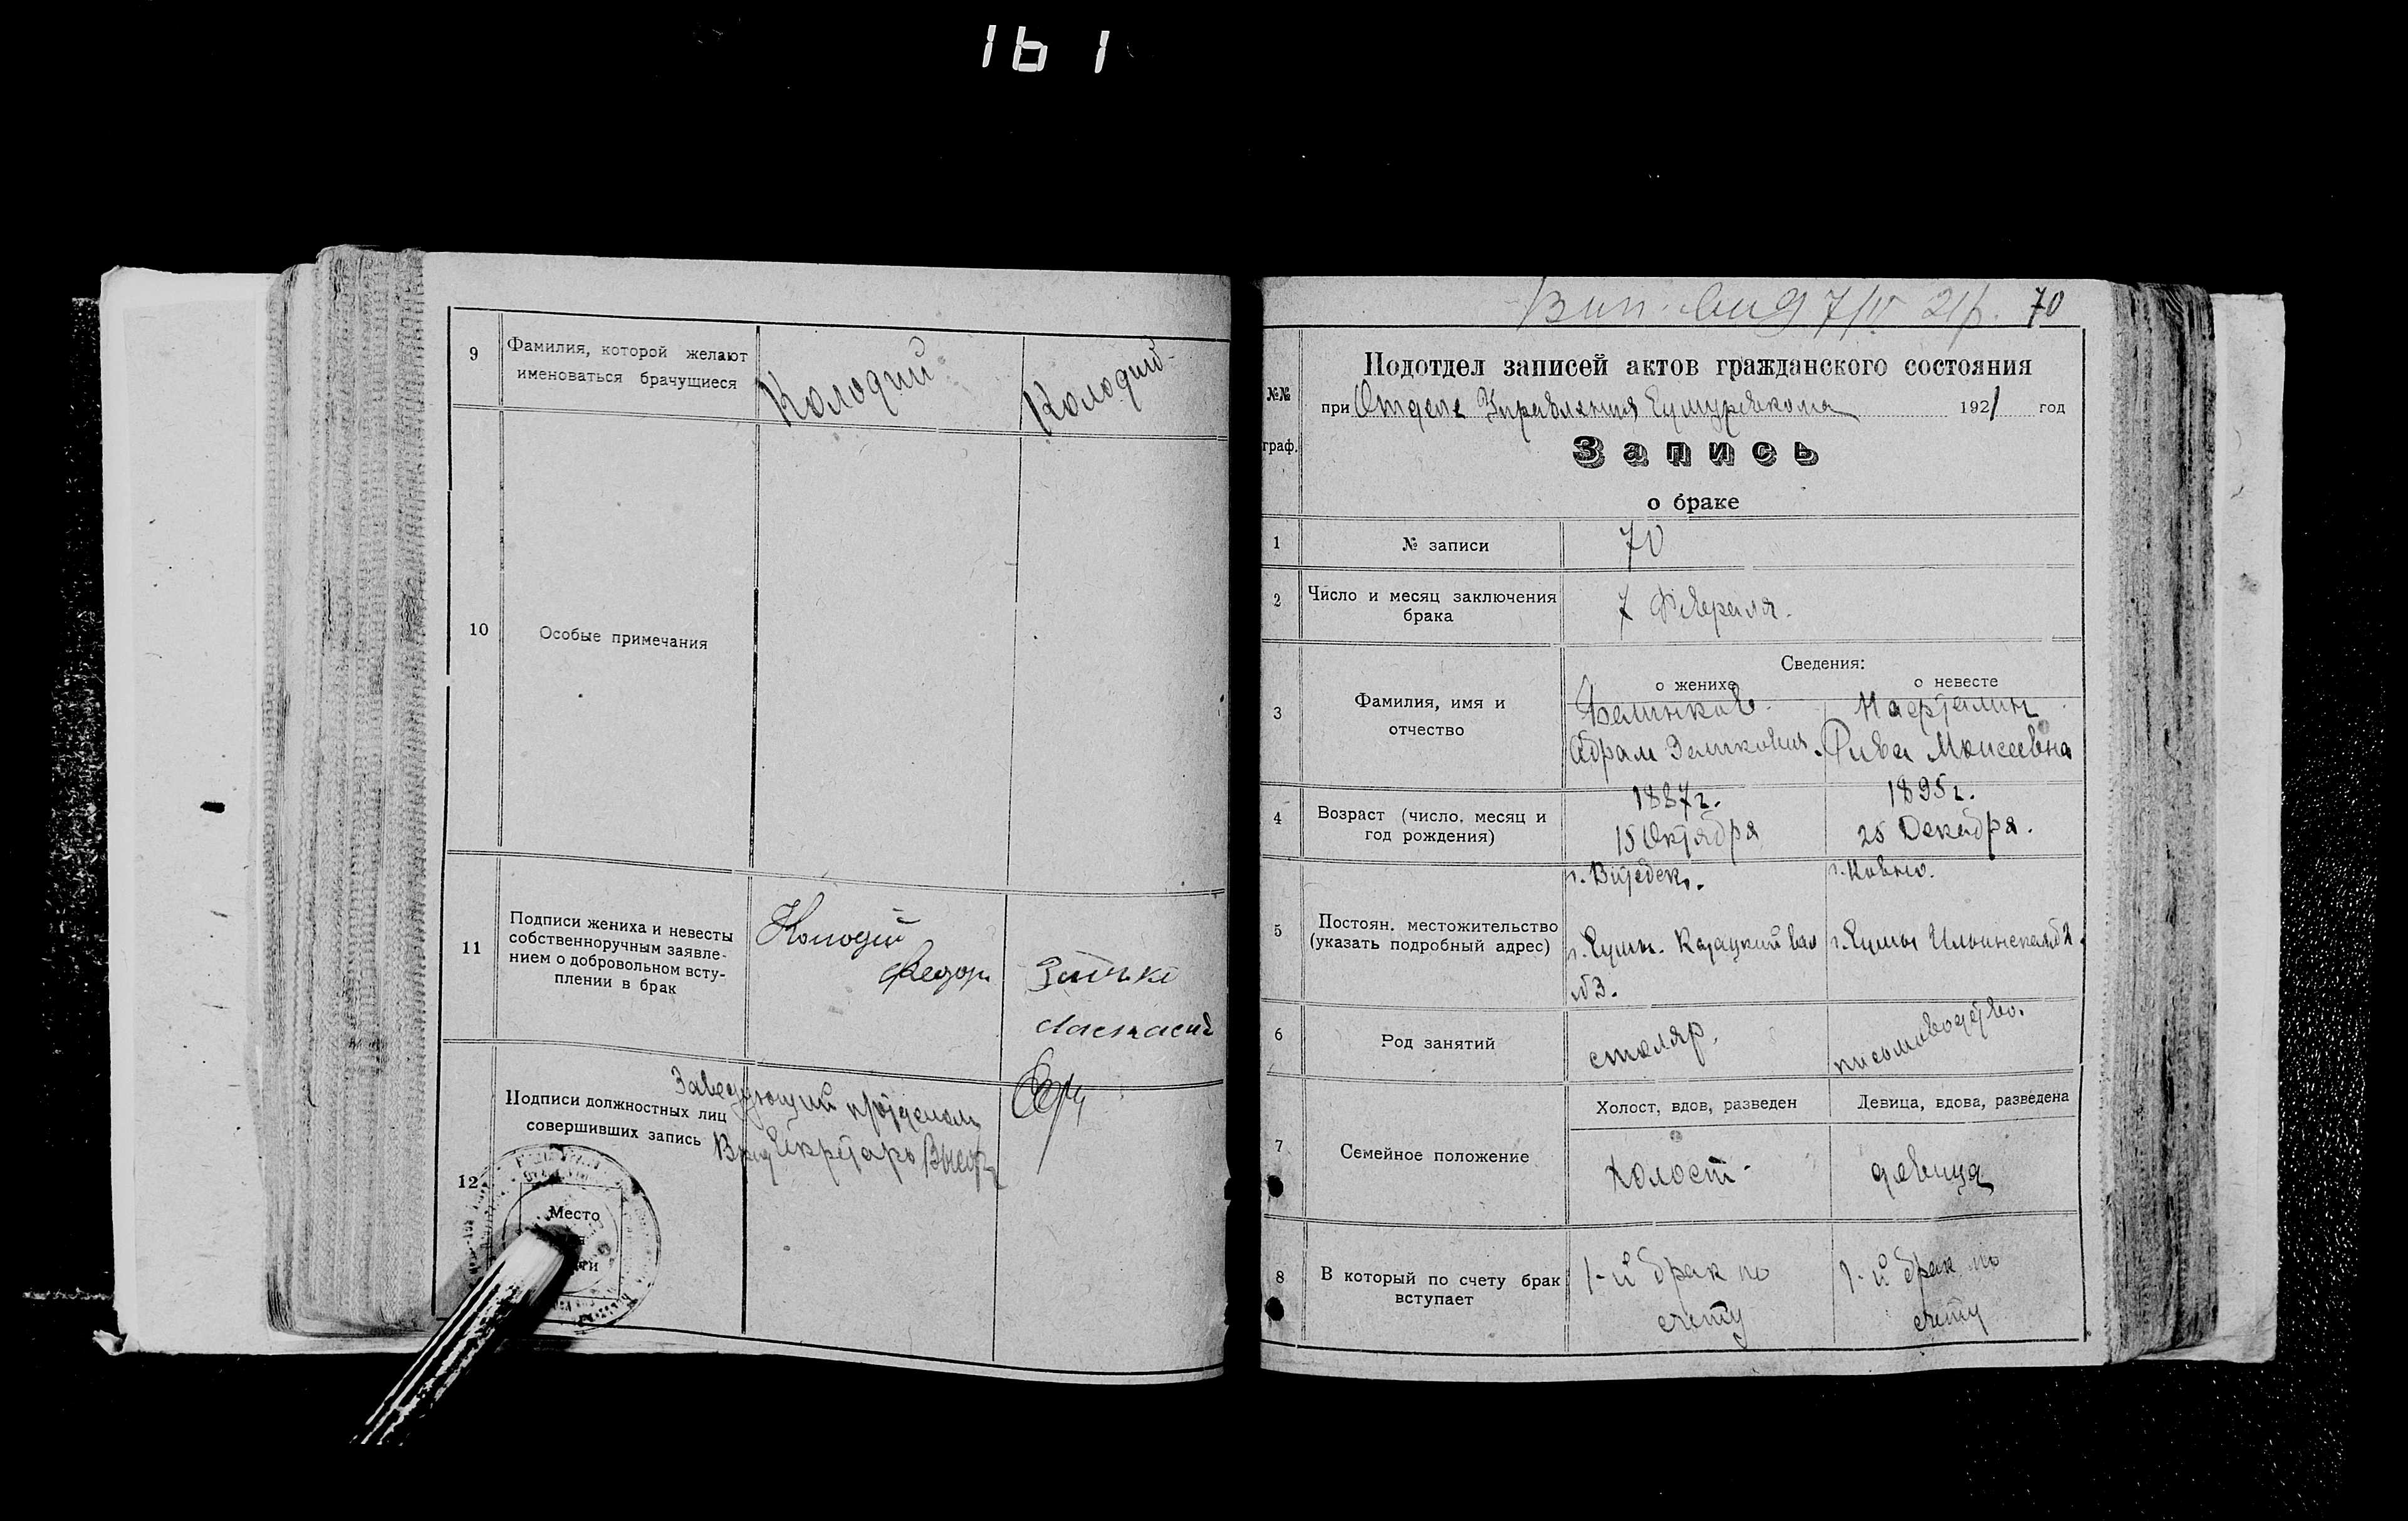 161
9
Фамилия, которой желают
именоваться брачущиеся
Колодий
Колодий
10
Особые примечания
11
Подписи жениха и невесты
собственноручным заявле-
нием о добровольном всту-
плении в брак
Колодий
Федор
12
Подписи должностных лиц
совершивших запись
Заведующий
Секретарь
Место
70
№№
граф.
Подотдел записей актов гражданского состояния
при Отделе Управления 1921 год
Запись
о браке
1
№ записи
70
2
Число и месяц заключения
брака
7 Февраля.
3
Фамилия, имя и
отчество
Сведения:
о женихе
о невесте
Абрам
Рива Моисеевна
4
Возраст (число, месяц и
год рождения)
1887г.
15 Октября
1895г.
25 Декабря.
5
Постоян. местожительство
(указать подробный адрес)
г. Витебск.
г. Сумы.
№3.
г. Ковно.
г. Сумы Ильинская №2.
6
Род занятий
столяр.
письмоводство.
7
Семейное положение
Холост, вдов, разведен
Девица, вдова, разведена
холост
девица
8
В который по счету брак
вступает
1-й брак по
счету
1-й брак по
счету